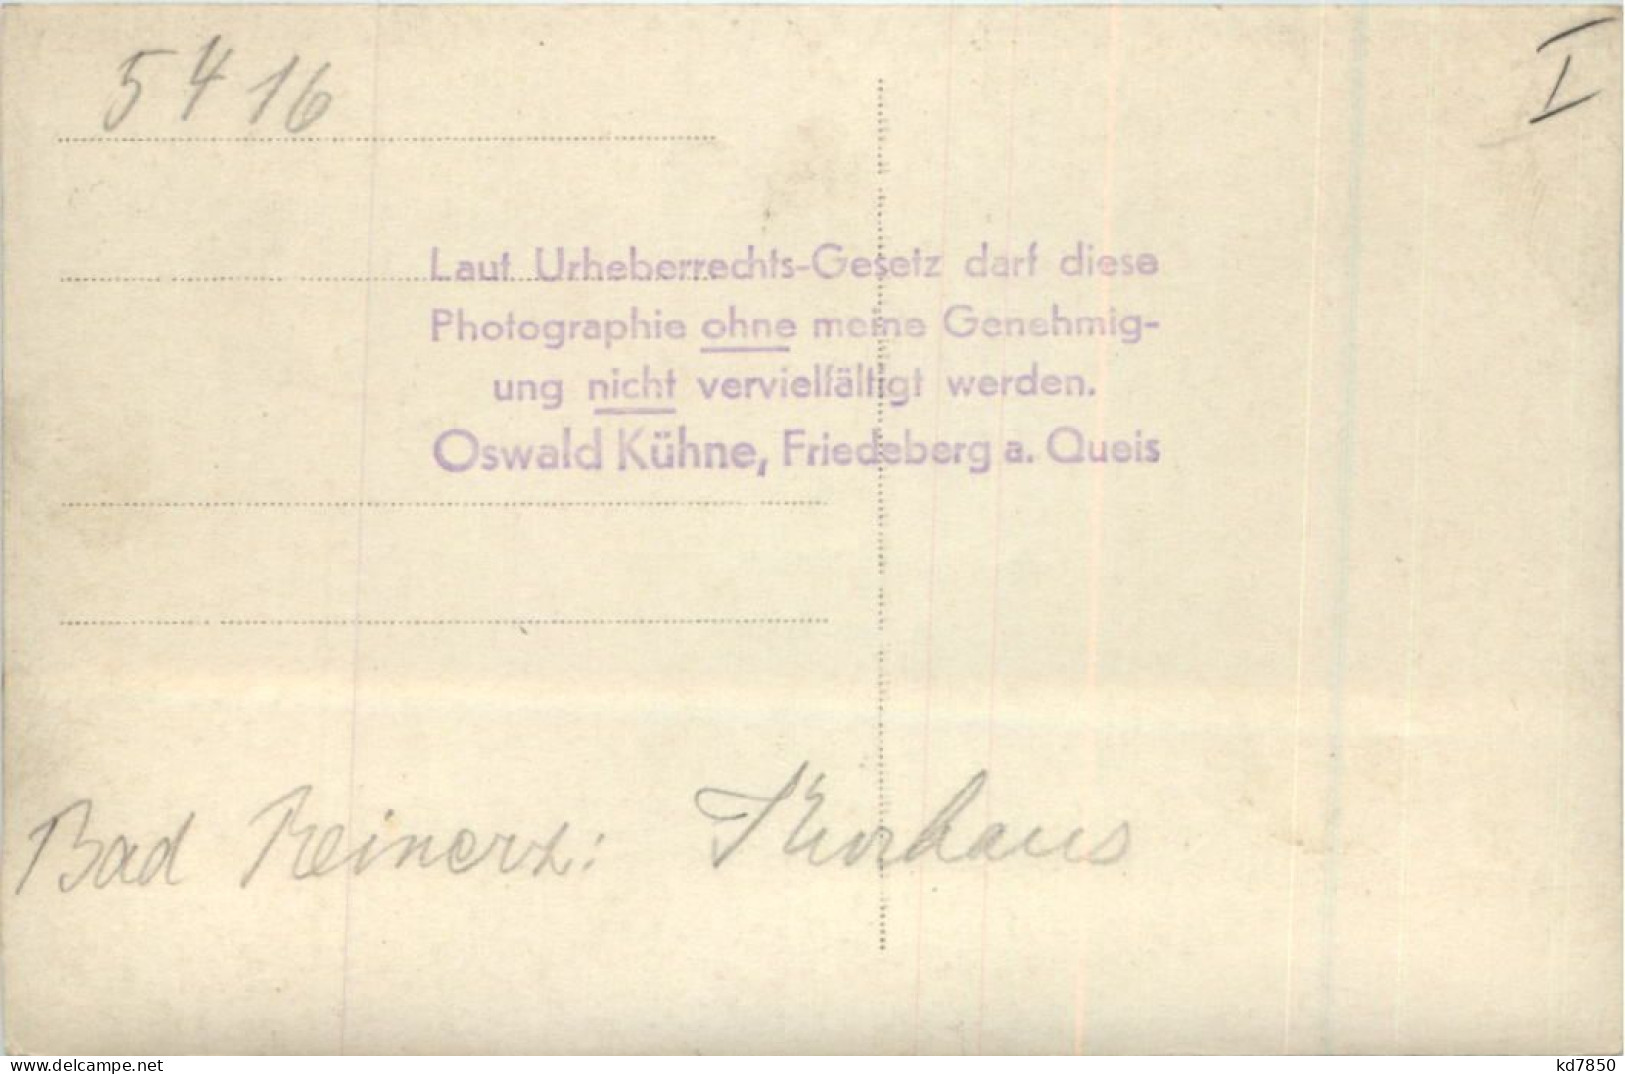 5416
I
Laut Urheberrechts-Gesetz darf diese
Photographie ohne meine Genehmig-
ung nicht vervielfältigt werden.
Oswald Kühne, Friedeberg a. Queis
Bad Reinerz: Kurhaus
www.delcampe.net
kd7850